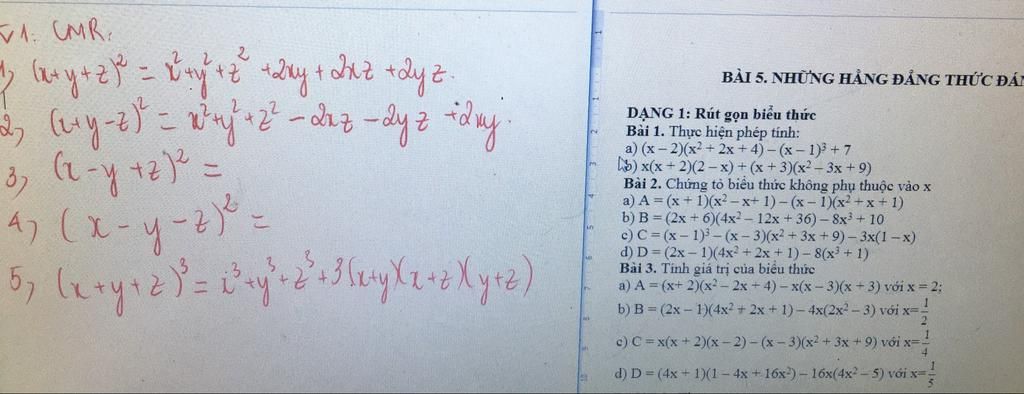 V1: CMR:
1, (x+y+z)² = x²+y²+z² +2xy+2xz+2yz.
2, (x+y-z)² = x²+y²+z² -2xz-2yz+2xy.
3, (x-y+z)² =
4, (x-y-z)² =
5, (x+y+z)³ = x³+y³+z³+3(x+y)(x+z)(y+z)
BÀI 5. NHỮNG HẰNG ĐẲNG THỨC
DẠNG 1: Rút gọn biểu thức
Bài 1. Thực hiện phép tính:
a) (x – 2)(x² + 2x + 4) – (x – 1)³ + 7
b) x(x + 2)(2 – x) + (x + 3)(x² – 3x + 9)
Bài 2. Chứng tỏ biểu thức không phụ thuộc vào x
a) A = (x + 1)(x² – x+ 1) – (x – 1)(x² + x + 1)
b) B = (2x + 6)(4x² – 12x + 36) – 8x³ + 10
c) C = (x – 1)³ – (x – 3)(x² + 3x + 9) – 3x(1 – x)
d) D = (2x – 1)(4x² + 2x + 1) – 8(x³ + 1)
Bài 3. Tính giá trị của biểu thức
a) A = (x+ 2)(x² – 2x + 4) – x(x – 3)(x + 3) với x = 2;
b) B = (2x – 1)(4x² + 2x + 1) – 4x(2x² – 3) với x=1/2
c) C = x(x + 2)(x – 2) – (x – 3)(x² + 3x + 9) với x=1/4
d) D = (4x + 1)(1 – 4x + 16x²) – 16x(4x² – 5) với x=1/5